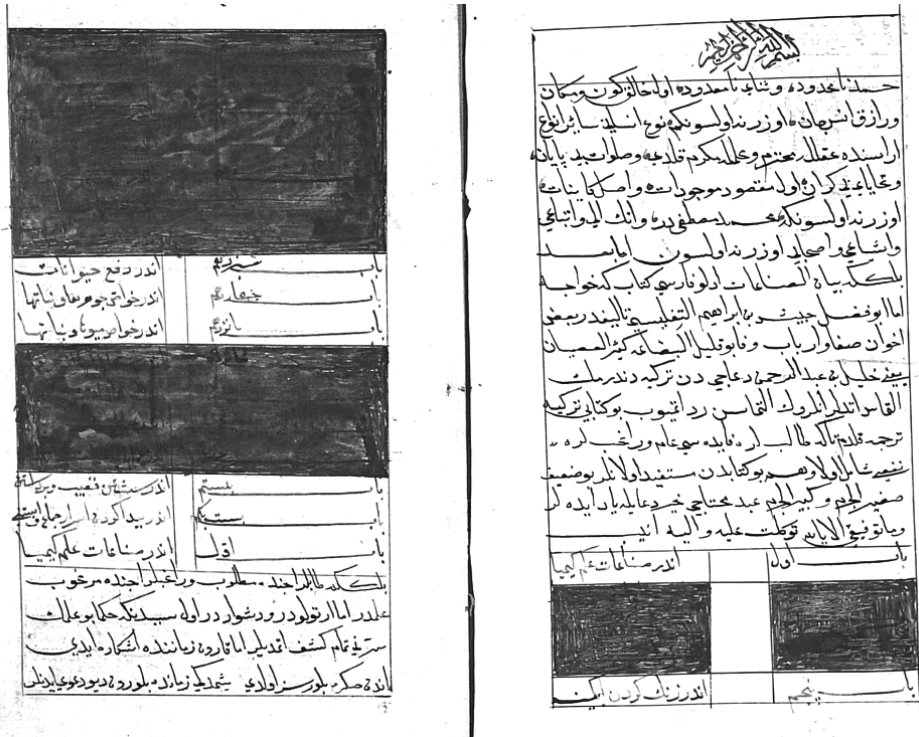 بسم الله الرحمن الرحيم
حمد نامحدوده و ثناء نامعدوده اول خالق كون و مكان
و رازق انس و جان اوزرنه اولسونكه نوع انسانى ساير انواع
اراسنده عقلله محترم و علمله مكرم قلدى و صلوات بى پايان
و تحاياء بى كران اول مقصود موجودات و اصل كاينات
اوزرنه اولسونكه محمد مصطفى در و انك الى و اتباعى
و اشياعى و اصحابى اوزرنه اولسون اما بعد
بلكه بيان الصناعات ادلو فارسى كتاب كه خواجه
اما ابو فضل حبيش بن ابراهيم التفليسى تاليفندر بعض
اخوان صفا و ارباب وفا بو قليل البضاعه كثير العصيان
يعنى خليل بن عبد الرحمن دعاجى دن تركيه دندرمك
التماس اتديلر انلروك التماسن رد اتميوب بو كتابى تركيه
ترجمه قلدم تاكه طالبلره فايده سى عام و راغبلره
نفعى شامل اولا و هم بو كتابدن مستفيد اولانلر بو ضعيف
صغير الجرم و كبير الجرم عبد محتاجى خير دعايله ياد ايده لر
توكلت عليه و اليه انيب
باب اول اندر صناعات علم كيميا
باب پنجم اندر رنك كردن ابكينه
باب سيزدهم اندر دفع حيوانات
باب چهاردهم اندر خواص جوهرها و نباتها
باب پانزدهم اندر خواص حيوانها
باب بيستم اندر
باب بيست يكم اندر پيدا كردن اسرار
باب اول اندر صناعات علم كيميا
بلكه طالبلر اچنده مطلوب و راغبلر اچنده مرغوب
علمدر اما ارتولودر و دشوار در اول سبدنكه حكما بو علمك
سرنى تمام كشف اتمديلر اما قارون زماننده اشكاره ايدى
اندن صكره بلورسز اولدى شمديكى زمانده بلورون ديو دعوى ايدنلر